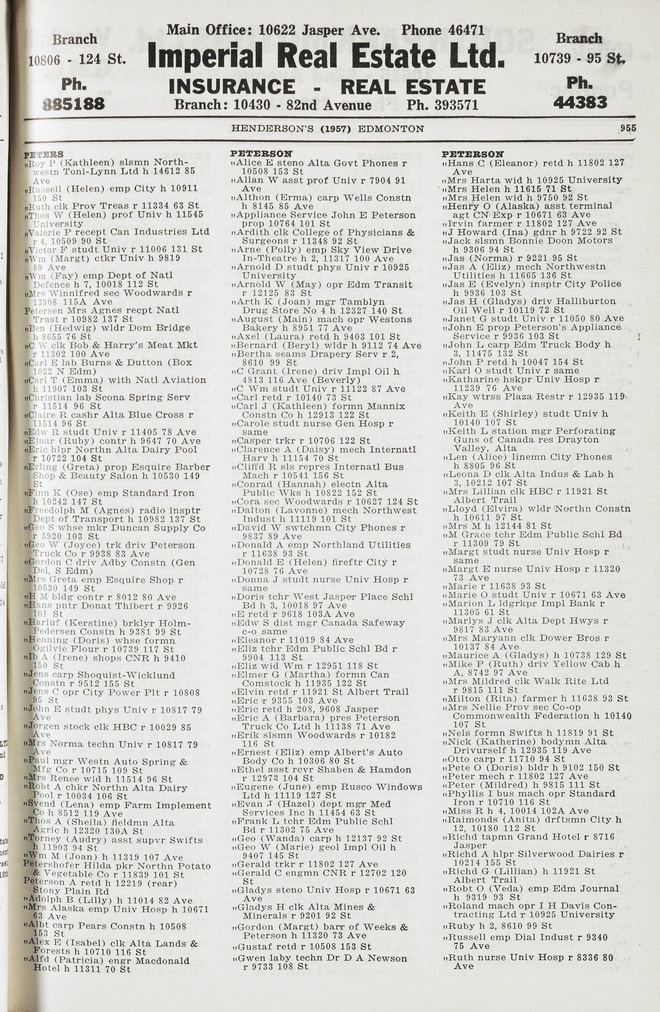 Main Office: 10622 Jasper Ave. Phone 46471
Branch
10806 - 124 St.
Ph.
885188
Imperial Real Estate Ltd.
INSURANCE - REAL ESTATE
Branch: 10430 - 82nd Avenue Ph. 393571
Branch
10739 - 95 St.
Ph.
44383
HENDERSON'S (1957) EDMONTON 955
PETERS
"Roy P (Kathleen) slsmn North-
westn Toni-Lynn Ltd h 14612 85
Ave
"Russell (Helen) emp City h 10911
150 St
"Ruth clk Prov Treas r 11334 63 St
"Thos W (Helen) prof Univ h 11545
University
"Valerie P recept Can Industries Ltd
r 4, 10509 90 St
"Victor F studt Univ r 11006 131 St
"Wm (Margt) ctkr Univ h 9819
80 Ave
"Wm (Fay) emp Dept of Natl
Defence h 7, 10018 112 St
"Mrs Winnifred sec Woodwards r
13908 115A Ave
Petersen Mrs Agnes recpt Natl
Trust r 10982 137 St
"Ben (Hedwig) wldr Dom Bridge
h 8655 76 St
"C W clk Bob & Harry's Meat Mkt
r 11302 100 Ave
"Carl E lab Burns & Dutton (Box
1022 N Edm)
"Carl T (Emma) with Natl Aviation
h 11907 103 St
"Christian lab Scona Spring Serv
r 11514 96 St
"Claire R cashr Alta Blue Cross r
11514 96 St
"Edw R studt Univ r 11405 78 Ave
"Ejnar (Ruby) contr h 9647 70 Ave
"Eric hlpr Northn Alta Dairy Pool
r 10722 104 St
"Erling (Greta) prop Esquire Barber
Shop & Beauty Salon h 10530 149
St
"Finn K (Ose) emp Standard Iron
h 10242 147 St
"Freedolph M (Agnes) radio insptr
Dept of Transport h 10982 137 St
"Geo S whse mkr Duncan Supply Co
r 5920 103 St
"Geo W (Joyce) trk driv Peterson
Truck Co r 9938 83 Ave
"Gordon C driv Adby Constn (Gen
Del, S Edm)
"Mrs Greta emp Esquire Shop r
10530 149 St
"H M bldg contr r 8012 80 Ave
"Hans pntr Donat Thibert r 9926
101 St
"Harluf (Kerstine) brklyr Holm-
Pedersen Constn h 9381 99 St
"Henning (Doris) whse formn
Ogilvie Flour r 10739 117 St
"Ib A (Irene) shops CNR h 9410
150 St
"Jens carp Shoquist-Wicklund
Constn r 9512 155 St
"Jens C opr City Power Plt r 10808
95 St
"John E studt phys Univ r 10817 79
Ave
"Jorgen stock clk HBC r 10029 85
Ave
"Mrs Norma techn Univ r 10817 79
Ave
"Paul mgr Westn Auto Spring &
Mfg Co r 10715 109 St
"Mrs Renee wid h 11514 96 St
"Robt A chkr Northn Alta Dairy
Pool r 10034 106 St
"Svend (Lena) emp Farm Implement
Co h 8512 119 Ave
"Thos A (Sheila) fieldmn Alta
Agric h 12320 130A St
"Torney (Audry) asst supvr Swifts
h 11903 94 St
"Wm M (Joan) h 11319 107 Ave
Petershofer Hilda pkr Northn Potato
& Vegetable Co r 11839 101 St
Peterson A retd h 12219 (rear)
Stony Plain Rd
"Adolph B (Lilly) h 11014 82 Ave
"Mrs Alaska emp Univ Hosp h 10671
63 Ave
"Albt carp Pears Constn h 10508
153 St
"Alex E (Isabel) clk Alta Lands &
Forests h 10710 116 St
"Alfd (Patricia) engr Macdonald
Hotel h 11311 70 St
PETERSON
"Alice E steno Alta Govt Phones r
10508 153 St
"Allan W asst prof Univ r 7904 91
Ave
"Althon (Erma) carp Wells Constn
h 8145 85 Ave
"Appliance Service John E Peterson
prop 10764 101 St
"Ardith clk College of Physicians &
Surgeons r 11348 92 St
"Arne (Polly) emp Sky View Drive
In-Theatre h 2, 11317 100 Ave
"Arnold D studt phys Univ r 10925
University
"Arnold W (May) opr Edm Transit
r 12125 83 St
"Arth K (Joan) mgr Tamblyn
Drug Store No 4 h 12327 140 St
"August (Main) mach opr Westons
Bakery h 8951 77 Ave
"Axel (Laura) retd h 9403 101 St
"Bernard (Beryl) wldr h 9112 74 Ave
"Bertha seams Drapery Serv r 2,
8610 99 St
"C Grant (Irene) driv Impl Oil h
4813 116 Ave (Beverly)
"C Wm studt Univ r 11122 87 Ave
"Carl retd r 10140 73 St
"Carl J (Kathleen) formn Mannix
Constn Co h 12913 122 St
"Carole studt nurse Gen Hosp r
same
"Casper trkr r 10706 122 St
"Clarence A (Daisy) mech Internatl
Harv h 11154 70 St
"Cliffd R sls repres Internatl Bus
Mach r 10541 156 St
"Conrad (Hannah) electn Alta
Public Wks h 10822 152 St
"Cora sec Woodwards r 10627 124 St
"Dalton (Lavonne) mech Northwest
Indust h 11119 101 St
"David W swtchmn City Phones r
9837 89 Ave
"Donald A emp Northland Utilities
r 11638 93 St
"Donald E (Helen) fireftr City r
10728 76 Ave
"Donna J studt nurse Univ Hosp r
same
"Doris tchr West Jasper Place Schl
Bd h 3, 10018 97 Ave
"E retd r 9618 103A Ave
"Edw S dist mgr Canada Safeway
c-o same
"Eleanor r 11019 84 Ave
"Eliz tchr Edm Public Schl Bd r
9904 113 St
"Eliz wid Wm r 12951 118 St
"Elmer G (Martha) formn Can
Comstock h 11935 132 St
"Elvin retd r 11921 St Albert Trail
"Eric r 9355 103 Ave
"Eric retd h 208, 9608 Jasper
"Eric A (Barbara) pres Peterson
Truck Co Ltd h 11138 71 Ave
"Erik slsmn Woodwards r 10182
116 St
"Ernest (Eliz) emp Albert's Auto
Body Co h 10306 80 St
"Ethel asst rcvr Shaben & Hamdon
r 12972 104 St
"Eugene (June) emp Rusco Windows
Ltd h 11119 127 St
"Evan J (Hazel) dept mgr Med
Services Inc h 11454 63 St
"Frank L tchr Edm Public Schl
Bd r 11302 75 Ave
"Geo (Wanda) carp h 12137 92 St
"Geo W (Marie) geol Impl Oil h
9407 145 St
"Gerald trkr r 11802 127 Ave
"Gerald C engmn CNR r 12702 120
St
"Gladys steno Univ Hosp r 10671 63
Ave
"Gladys H clk Alta Mines &
Minerals r 9201 92 St
"Gordon (Margt) barr of Weeks &
Peterson h 11320 73 Ave
"Gustaf retd r 10508 153 St
"Gwen laby techn Dr D A Newson
r 9733 108 St
PETERSON
"Hans C (Eleanor) retd h 11802 127
Ave
"Mrs Harta wid h 10925 University
"Mrs Helen h 11615 71 St
"Mrs Helen wid h 9750 92 St
"Henry O (Alaska) asst terminal
agt CN Exp r 10671 63 Ave
"Irvin farmer r 11802 127 Ave
"J Howard (Ina) gdnr h 9722 92 St
"Jack slsmn Bonnie Doon Motors
h 9306 94 St
"Jas (Norma) r 9221 95 St
"Jas A (Eliz) mech Northwestn
Utilities h 11665 136 St
"Jas E (Evelyn) insptr City Police
h 9936 103 St
"Jas H (Gladys) driv Halliburton
Oil Well r 10119 72 St
"Janet G studt Univ r 11050 80 Ave
"John E prop Peterson's Appliance
Service r 9936 103 St
"John L carp Edm Truck Body h
3, 11475 132 St
"John P retd h 10047 154 St
"Karl O studt Univ r same
"Katharine hskpr Univ Hosp r
11239 76 Ave
"Kay wtrss Plaza Restr r 12935 119
Ave
"Keith E (Shirley) studt Univ h
10140 107 St
"Keith L station mgr Perforating
Guns of Canada res Drayton
Valley, Alta
"Len (Alice) linemn City Phones
h 8805 96 St
"Leona D clk Alta Indus & Lab h
3, 10212 107 St
"Mrs Lillian clk HBC r 11921
Albert Trail
"Lloyd (Elvira) wldr Northn Constn
h 10611 97 St
"Mrs M h 12144 81 St
"M Grace tchr Edm Public Schl Bd
r 11309 79 St
"Margt studt nurse Univ Hosp r
same
"Margt E nurse Univ Hosp r 11320
73 Ave
"Marie r 11638 93 St
"Marie O studt Univ r 10671 63 Ave
"Marion L ldgrkpr Impl Bank r
11305 61 St
"Marlys J clk Alta Dept Hwys r
9817 83 Ave
"Mrs Maryann clk Dower Bros r
10137 84 Ave
"Maurice A (Gladys) h 10738 129 St
"Mike P (Ruth) driv Yellow Cab h
A, 8742 97 Ave
"Mrs Mildred clk Walk Rite Ltd
r 9815 111 St
"Milton (Rita) farmer h 11638 93 St
"Mrs Nellie Prov sec Co-op
Commonwealth Federation h 10140
107 St
"Nels formn Swifts h 11819 91 St
"Nick (Katherine) bodymn Alta
Drivurself h 12935 119 Ave
"Otto carp r 11710 94 St
"Pete O (Doris) bldr h 9102 150 St
"Peter mech r 11802 127 Ave
"Peter (Mildred) h 9815 111 St
"Phyllis I bus mach opr Standard
Iron r 10710 116 St
"Miss R h 4, 10014 102A Ave
"Raimonds (Anita) drftsmn City h
12, 10180 112 St
"Richd tapmn Grand Hotel r 8716
Jasper
"Richd A hlpr Silverwood Dairies r
10214 155 St
"Richd G (Lillian) h 11921
Albert Trail
"Robt O (Veda) emp Edm Journal
h 9319 93 St
"Roland mach opr I H Davis Con-
tracting Ltd r 10925 University
"Ruby h 2, 8610 99 St
"Russell emp Dial Indust r 9340
75 Ave
"Ruth nurse Univ Hosp r 8336 80
Ave